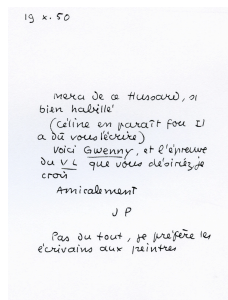 19 x. 50
merci de ce Hussard, si
bien habillé
(Céline en paraît fou Il
a dû vous l'écrire)
Voici Gwenny, et l'épreuve
du V L que vous désiriez, je
crois
Amicalement
J P
Pas du tout, je préfère les
écrivains aux peintres